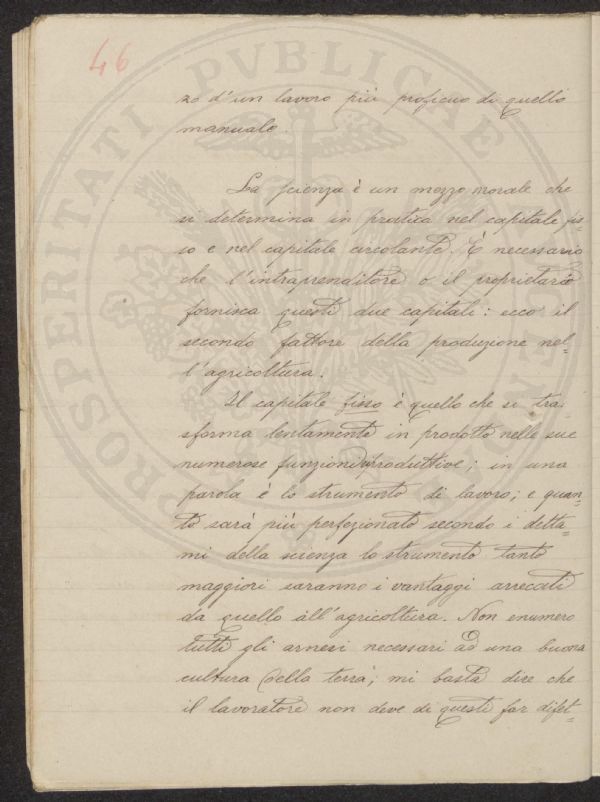 46
zo d'un lavoro più proficuo di quello
manuale.
La scienza è un mezzo morale che
si determina in pratica nel capitale fis-
so e nel capitale circolante. È necessario
che l'intraprenditore o il proprietario
fornisca questi due capitali: ecco il
secondo fattore della produzione nel-
l'agricoltura.
Il capitale fisso è quello che si tra-
sforma lentamente in prodotto nelle sue
numerose funzioni produttive; in una
parola è lo strumento di lavoro; e quan-
to sarà più perfezionato secondo i detta-
mi della scienza lo strumento tanto
maggiori saranno i vantaggi arrecati
da quello all'agricoltura. Non enumero
tutti gli arnesi necessari ad una buona
cultura della terra; mi basta dire che
il lavoratore non deve di questi far difet-
PROSPERITATI PVBLICAE AVGENDAE